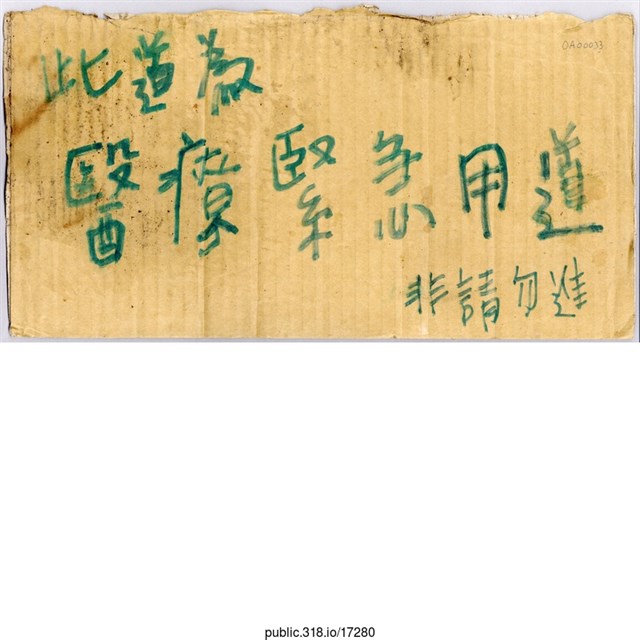 OA00033
此道為
醫療緊急用道
非請勿進
public.318.io/17280